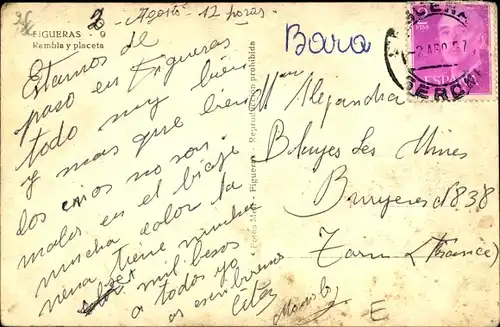 2 - Agosto - 12 horas
FIGUERAS - 9
Rambla y placeta
Estamos de
paso en Figueras
todo muy bien
y mas que bien
los crios no son
malos en el biaje
mucha calor la
nena tiene mucha
mil besos
a todos yo
os escribiremos
Bara
Alejandra
Blayes Les Mines
Bruyeres 1838
Tarn (France)
Manolo
E
Fotos Meli - Figueras - Reproducción prohibida
PTAS
ESPAÑA
GERONA
2 AGO 57